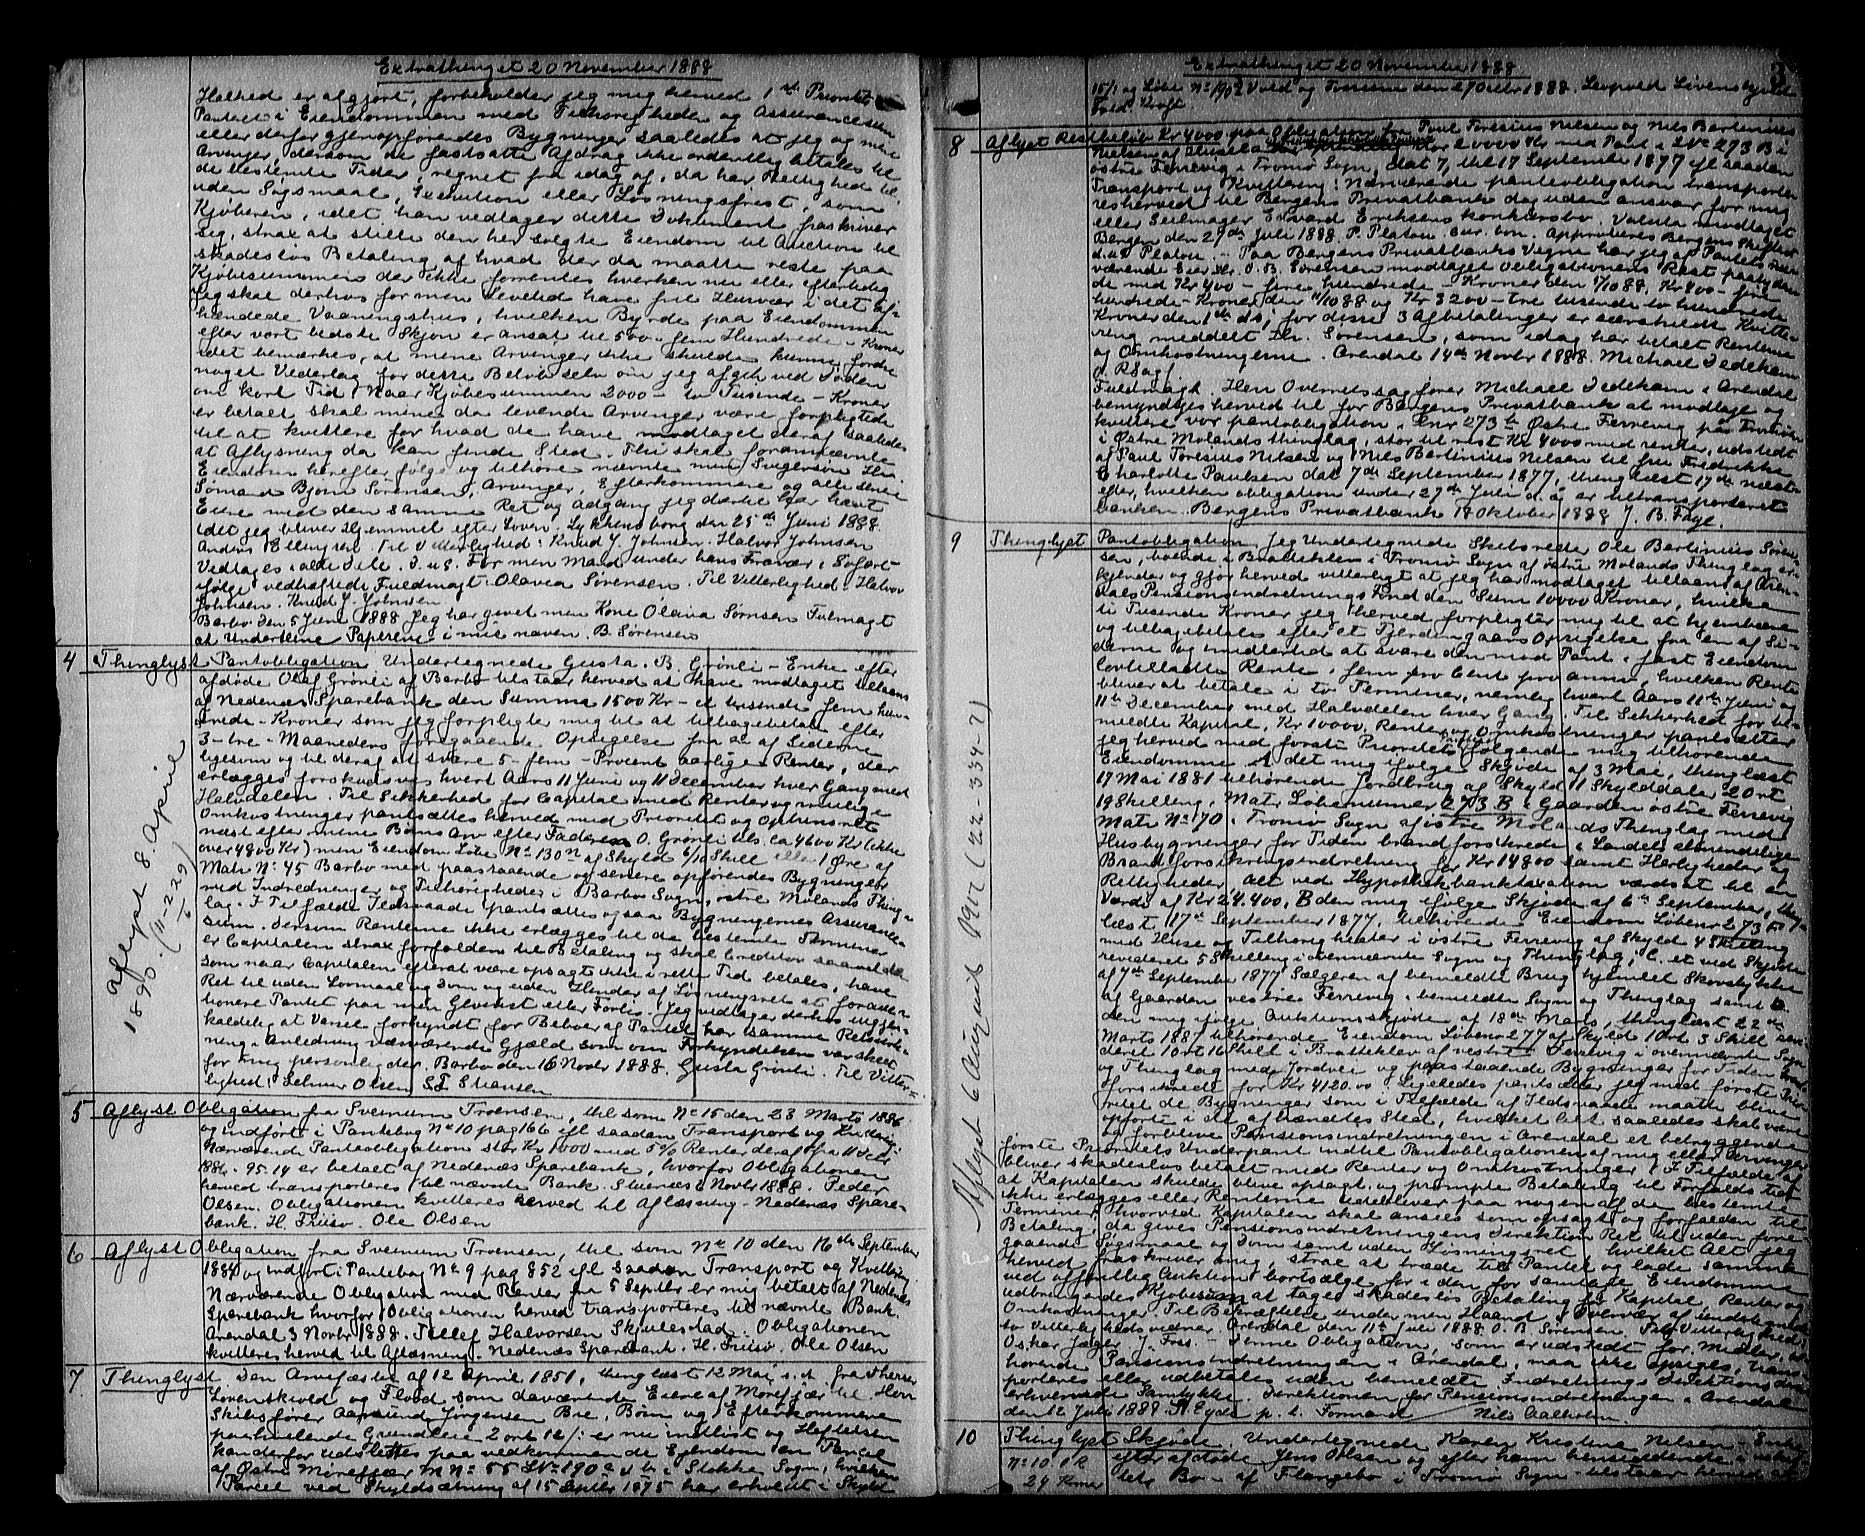 Extrathinget 20 November 1888
Helhed er afgjort, forbeholder jeg mig herved 1ste Prioritets
Panteret i Eiendommen med Tilhørigheder og Assurancesum
eller derfor gjenopførendes Bygninger saaledes at jeg og mine
Arvinger, dersom de fastsatte Afdrag ikke ordentlig betales til
de bestemte Tider, regnet fra idag af, da har Rettighed til
uden Søgsmaal, Execution eller Løsningsfrist, som
Kjøberen, idet han vedtager dette Dokument fraskriver
sig, strax at stille den her solgte Eiendom til Auction til
skadesløs Betaling af hvad der da maatte reste paa
Kjøbesummen der ikke forrentes hverken nu eller efterledig
Jeg skal derhos for min Levetid have frit Husvær i det af-
hændede Vaaningshus, hvilken Byrde paa Eiendommen
efter vort bedste Skjøn er ansat til 500 - fem Hundrede - Kroner
idet bemærkes, at mine Arvinger ikke skulde kunne fordre
noget Vederlag for dette Beløb selv om jeg afgik ved Døden
om kort Tid. Naar Kjøbesummen 2000 - to Tusende - Kroner
er betalt skal mine da levende Arvinger være forpligtede
til at kvittere for hvad de have modtaget deraf saaledes
at Aflysning da kan finde Sted. Thi skal forannævnte
Eiendom herefter følge og tilhøre nævnte min Svigersøn Hr
Sømand Bjørn Sørensen, Arvinger, Efterkommere og alle senere
Eiere med den samme Ret og Adgang jeg dertil har havt
idet jeg bliver Hjemmel efter Loven. Lykkensborg den 25de Juni 1888.
Anders Ellingsen. Til Vitterlighed: Knud J. Johnsen. Halvor Johnsen
Vedtages i alle Dele. D.u.s. For min Mand under hans Fravær i Søfart
ifølge vedhæftede Fuldmagt. Olavia Sørensen. Til Vitterlighed: Halvor
Johnsen. Knud J. Johnsen.
Barbo den 5 Juni 1888 Jeg har givet min Kone Olavia Sørnsen Fulmagt
at Underteine Paperene i mit naven. B. Sørensen
4 Thinglyst Pantobligation Undertegnede Gusta. B. Grønli - Enke efter
afdøde Olaf Grønli af Barbo tilstaar herved at have modtaget tillaans
af Nedenes Sparebank den Summa 1500 Kr - et tusinde fem hun-
drede - Kroner som jeg forpligter mig til at tilbagebetale efter
3 - tre - Maaneders foregaaende Opsigelse fra en af Siderne
ligesom og til deraf at svare 5 - fem - Procent aarlige Renter, der
erlægges forskudsvis hvert Aars 11 Juni og 11 December hver Gang med
Halvdelen. Til Sikkerhed for Capital med Renter og mulige
Omkostninger pantsættes herved med Prioritet og Optrinsret
næst efter mine Børns Arv efter Faderen O. Grønli tils. ca 4600 Kr (ikke
over 4800 Kr) min Eiendom Løbe No 130 af Skyld 6/10 Skill eller 1 Øre af
Matr No 45 Barbo med paastaaende og senere opførendes Bygninger
med Indredninger og Tilhørigheder i Barbo Sogn, østre Molands Thing-
lag. I Tilfælde Ildsvaade pantsættes ogsaa Bygningernes Assurance-
sum. Dersom Renterne ikke erlægges til de bestemte Terminer
er Capitalen strax forfalden til Betaling og skal Creditor saavel da
som naar Capitalen efterat være opsagt ikke i rette Tid betales, have
Ret til uden Lovmaal og Dom og uden Hinder af Løsningsret at foraue-
tionere Pantet paa min Gevinst eller Forlis. Jeg vedtager derhos uigjen-
kaldelig at Varsel forkyndt for Beboer af Pantet har samme Retsvirk-
ning i Anledning nærværende Gjæld som om Forkyndelsen var skeet
for mig personlig der. Barbo den 16 Novbr 1888. Gusta Grønli. Til Vitter-
lighed: Selmer Olsen S.T. Stiansen
Aflyst 8. April
1890. (11-229)
5 Aflyst Obligation fra Svenum Troensen, thl som No 15 den 23 Marts 1886
og indført i Pantebog No 10 pag 166 efl saadan Transport og Kvittering
Nærværende Pantobligation stor Kr 1000 med 5% Renter deraf fra 11 Febr
188 . 95.14 er betalt af Nedenæs Sparebank, hvorfor Obligationen
herved transporteres til nævnte Bank. Stuenæs 6 Novbr 1888. Peder
Olsen. Obligationen kvitteres herved til Aflæsning - Nedenæs Spare-
bank. H. Friisø. Ole Olsen
6 Aflyst Obligation fra Svenum Troensen, thl som No 10 den 16de September
1884 og indført i Pantebog No 9 pag 852 efl saadan Transport og Kvittering
Nærværende Obligation med Renter fra 5 Septbr er mig betalt af Nedenæs
Sparebank hvorfor Obligationen herved transporteres til nævnte Bank.
Arendal 3 Novbr 1888. Tellef Halvorsen Skjulestad. Obligationen
kvitteres herved til Aflæsning. Nedenæs Sparebank. H. Friisø. Ole Olsen
7 Thinglyst Den Arvefæste af 12 April 1851, thinglæst 12 Mai s.A. fra Therese
Løvenskiold og Flood som daværende Eiere af Morefjær til Herr
Skibsfører Aanund Jørgensen Bre, Børn og Efterkommere
paahvilende Grundleie 2 ort 12 /: er nu indløst og Heftelsen
kan derfor udslettes paa vedkommende Eiendom en Parcel
af Østre Morefjær M No 55 LNo 190 a i Stokke Sogn, hvilken
Parcel ved Skyldsætning af 15 Septbr 1875 har erholdt i Skyld
Extrathinget 20 November 1888
3
15/1 og Løbe No 190 Vold og Tromsø den 27 Octbr 1888. Leopold Løvenskjold
Fred. Kroft.
8 Aflyst Restbeløb Kr 4000 paa Obligation fra Paul Toresius Nielsen og Nils Bertinius
østre Færevig i Tromø Sogn, dat 7, thl 17 September 1877 efl saadan
Transport og Kvittering: Nærværende pantobligation transporteres
herved til Bergens Privatbank dog uden ansvar for mig
eller Seilmager Edvard Eriksens konkursbo. Valuta modtaget
Bergen den 27de Juli 1888. P. Platou. cur. bon. Approberes Bergens Skifteret
d.u.s Platou. - Paa Bergens Privatbanks Vegne har jeg af Pantets nu-
værende Eier Hr. O. B. Sørensen modtaget Obligationens Rest paalyden-
de med Kr 400 - fire hundrede - Kroner den 1/10 88, Kr 400 - fire
hundrede - Kroner den 11/10 88 og Kr 3200 - tre tusende to hundrede
Kroner den 1ste ds; for disse 3 Afbetalinger er særskildt Kvitte-
ring meddelt Hr. Sørensen, som idag har betalt Renterne
og Omkostningerne. Arendal 14de Novbr 1888. Michael Dedekam
O.R.Sag.
Fuldmagt. Herr Overretssagfører Michael Dedekam i Arendal
bemyndiges herved til for Bergens Privatbank at modtage og
kvittere vor pantobligation i Lnr 273 b Østre Ferrevig paa Tromøen
i Østre Molands thinglag, stor til rest Kr 4000 med renter, udstedt
af Paul Toresius Nielsen og Nils Bertinius Nielsen til fru Fredrikke
Charlotte Paulsen dat 7de September 1877, thinglæst 17de næst-
efter, hvilken obligation under 27de Juli d.a. er tiltransporteret
banken. Bergens Privatbank 18 Oktober 1888 J. B. Faye.
9 Thinglyst Pantobligation. Jeg Undertegnede Skibsreder Ole Bertinius Søren-
sen, boende i Bratteklev i Tromø Sogn af østre Molands Thinglag er-
kjender og gjør herved vitterligt at jeg har modtaget tillaans af Aren-
dals Pensionsindretnings Fond den Sum 10000 Kroner, hvilke
ti Tusende Kroner jeg herved forpligter mig til at hjembære
og tilbagebetale efter et Fjerdingaars Opsigelse fra en af Si-
derne og imidlertid at svare den mod Pant i fast Eiendom
lovtilladte Rente, fem pro Cent pro anno, hvilken Rente
bliver at betale i to Terminer, nemlig hvert Aars 11te Juni og
11te December med Halvdelen hver Gang. Til Sikkerhed for be-
meldte Kapital, Kr 10000, Renter og Omkostninger pantsætter
jeg herved med første Prioritets følgende mig tilhørende
Eiendomme A det mig ifølge Skjøde af 3 Mai, thinglæst
17 Mai 1881 tilhørende Jordbrug af Skyld 1 Skylddaler 2 ort
19 Skilling, Matr Løbenumer 273 B i Gaarden østre Ferrevig
Matr No 70 i Tromø Sogn af østre Molands Thinglag med
Husbygninger for Tiden brandforsikrede i Landets almindelige
Brandforsikringsindretning for Kr 14800 samt Herligheder og
Rettigheder, alt ved Hypothekbanktaxation værdsat til en
Værdi af Kr 24.400, B den mig ifølge Skjøde af 6te September, thing-
læst 17de September 1877, tilhørende Eiendom Løbenr 273
med Huse og Tilhørigheder i østre Ferrevig af Skyld 4 Skilling
revideret 5 Skilling i ovennævnte Sogn og Thinglag, C. et ved Skjøde
af 7de September 1877 Sælgeren af bemeldte Brug hjemlet Skovstykke
af Gaarden vestre Ferrevig i bemeldte Sogn og Thinglag samt D.
den mig ifølge Auktionsskjøde af 18de Marts, thinglæst 22de
Marts 1887 tilhørende Eiendom Løbenr 277 af Skyld 1 Ort 3 Skill revi-
deret 1 Ort 16 Skill i Bratteklev af vestre Ferrevig i ovennævnte Sogn
og Thinglag med Jordvei og paastaaende Bygninger for Tiden brand-
forsikrede for Kr 4120.00. Ligeledes pantsætter jeg med første Prio-
ritet de Bygninger som i Tilfælde af Ildsvaade maatte blive
opførte i de afbrændtes Sted, hvilket alt saaledes skal være
og forblive Pensionsindretningen i Arendal et betryggende
første Prioritets Underpant indtil Pantobligationen af mig eller Arvinger
bliver skadesløs betalt med Renter og Omkostninger. I Tilfælde af
at Kapitalen skulde blive opsagt, og prompte Betaling til Forfalds tid
ikke erlægges eller Renterne udebliver paa nogen af de bestemte
Terminer, hvorved Kapitalen skal ansees som opsagt og forfalden til
Betaling, da gives Pensionsindretningens Direktion Ret til uden fore-
gaaende Søgsmaal og Dom samt uden Løsningsret, hvilket Alt jeg
herved fraskriver mig, strax at træde til Pantet og lade samme
ved offentlig Auktion bortsælge for i den for samtlige Eiendomme
udbringendes Kjøbesum at tage skadesløs Betaling for Kapital, Renter og
Omkostninger. Til Bekræftelse under min Haand i Overvær af undertegnede
to Vitterlighedsvidner. Arendal den 11te Juli 1888. O. B. Sørensen. Til Vitterlighed:
Oskar Jæger. J. Foss. - Denne Obligation, som er udstedt for Midler, til-
hørende Pensionsindretningen i Arendal, maa ikke opsiges, trans-
porteres eller udbetales uden bemeldte Indretnings Direktions der-
erhvervede Samtykke. Direktionen for Pensionsindretningen i Arendal
den 12 Juli 1888. p. t. Formand / Nils Aalholm.
Aflyst 6 August 1907 (22-334-2)
10 Thinglyst Skjøde. Undertegnede Karen Kristine Nilsen - Enke
No 10 1 R efter afdøde Jens Olsen og efter ham hensiddende i uskif-
24 Kroner tet Bo - af Flangebo i Tromø Sogn tilstaar herved at